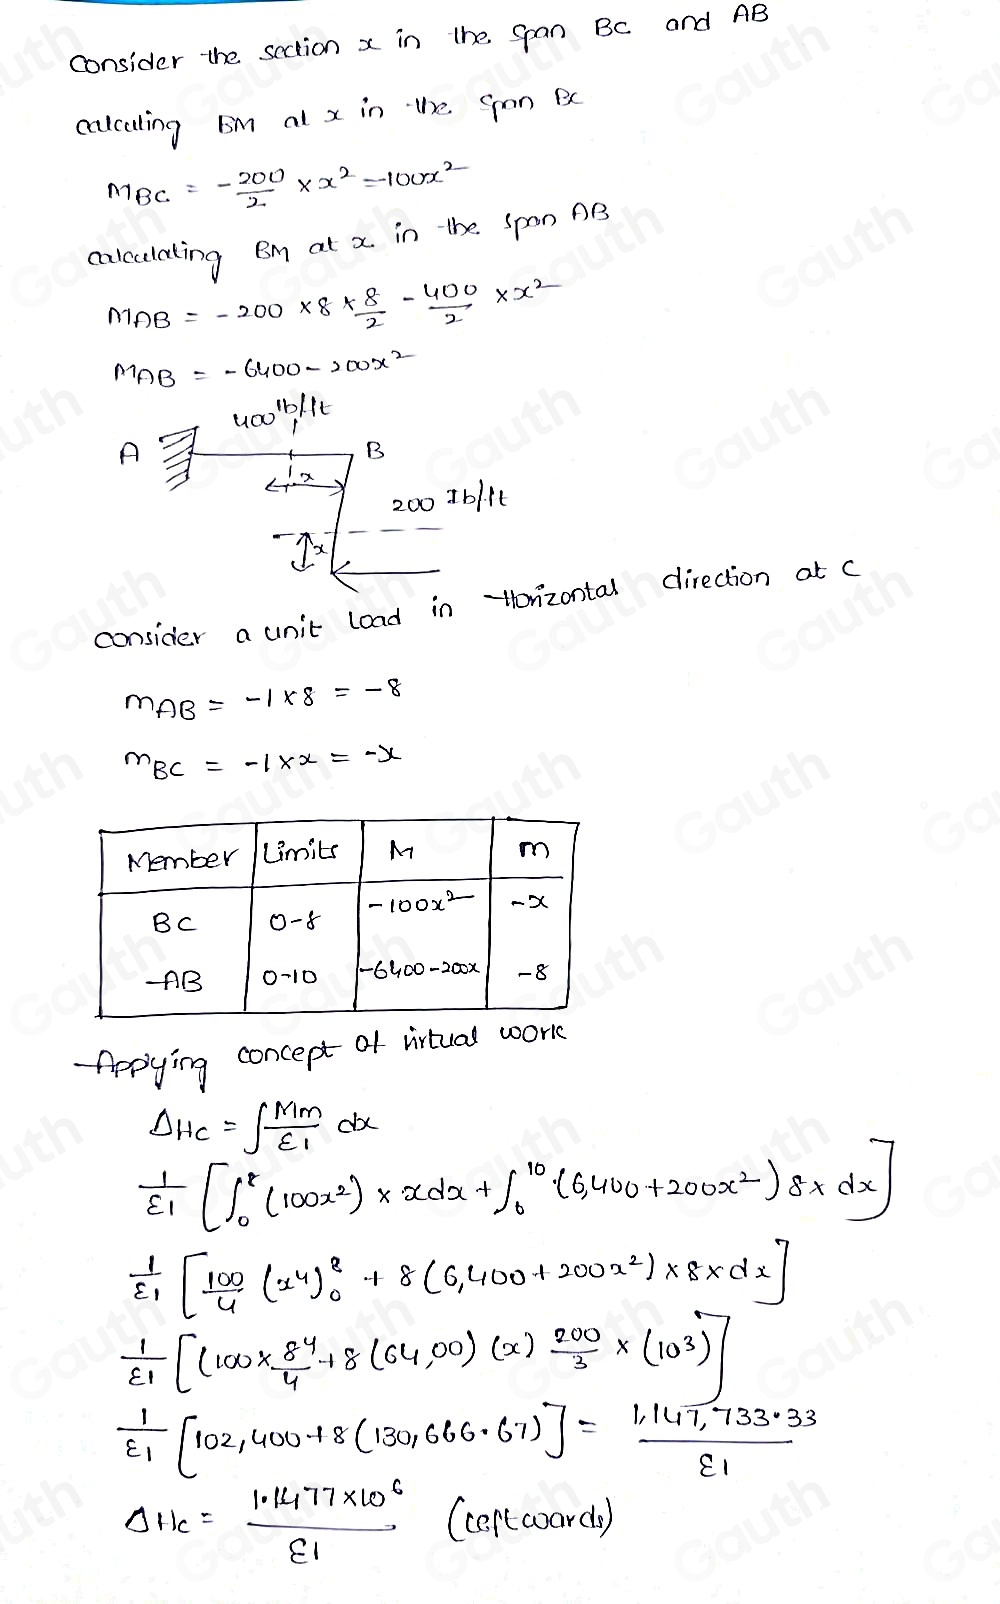 Consider the section x in the span BC and AB
calculing BM at x in the span BC
MBC = -200/2 × x² = -100x²
calculating BM at x in the span AB
MAB = -200 × 8 × 8/2 - 400/2 × x²
MAB = -6400 - 200x²
400 lb/ft
A
B
x
200 Ib/ft
x
consider a unit load in Horizontal direction at C
mAB = -1×8 = -8
mBC = -1×x = -x
Member Limits M m
BC 0-8 -100x² -x
AB 0-10 -6400-200x -8
Applying concept of virtual work
ΔHC = ∫ Mm/EI dx
1/EI [∫₀⁸ (100x²) × xdx + ∫₀¹⁰ (6,400+200x²) 8x dx]
1/EI [100/4 (x⁴)₀⁸ + 8(6,400+200x²) × 8 × dx]
1/EI [(100 × 8⁴/4 + 8(64,00) (x) 200/3 × (10³)]
1/EI [102,400 + 8(130,666.67)] = 1,147,733.33/EI
ΔHC = 1.1477×10⁶/EI (leftwards)